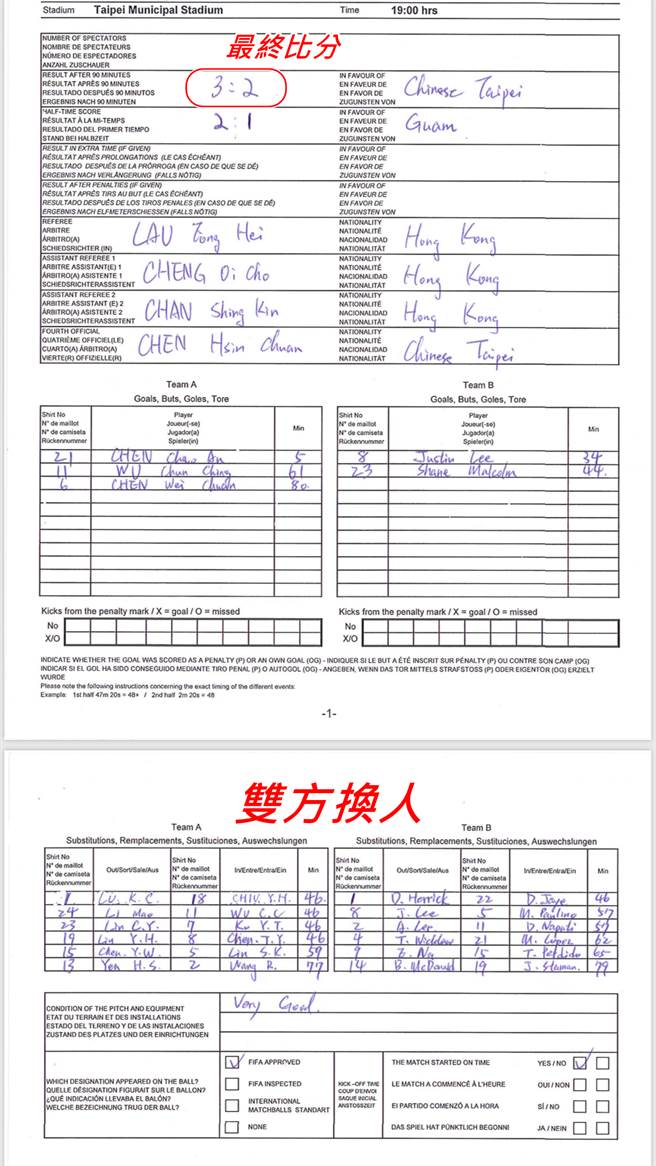 Stadium Taipei Municipal Stadium Time 19:00 hrs
最終比分
NUMBER OF SPECTATORS
NOMBRE DE SPECTATEURS
NÚMERO DE ESPECTADORES
ANZAHL ZUSCHAUER
RESULT AFTER 90 MINUTES
RÉSULTAT APRÈS 90 MINUTES
RESULTADO DESPUÉS 90 MINUTOS
ERGEBNIS NACH 90 MINUTEN
3:2
IN FAVOUR OF
EN FAVEUR DE
EN FAVOR DE
ZUGUNSTEN VON
Chinese Taipei
HALF-TIME SCORE
RÉSULTAT À LA MI-TEMPS
RESULTADO DEL PRIMER TIEMPO
STAND BEI HALBZEIT
2:1
IN FAVOUR OF
EN FAVEUR DE
EN FAVOR DE
ZUGUNSTEN VON
Guam
RESULT IN EXTRA TIME (IF GIVEN)
RÉSULTAT APRÈS PROLONGATIONS (LE CAS ÉCHÉANT)
RESULTADO DESPUÉS DE LA PRÓRROGA (EN CASO DE QUE SE DÉ)
ERGEBNIS NACH VERLÄNGERUNG (FALLS NÖTIG)
IN FAVOUR OF
EN FAVEUR DE
EN FAVOR DE
ZUGUNSTEN VON
RESULT AFTER PENALTIES (IF GIVEN)
RÉSULTAT APRÈS TIRS AU BUT (LE CAS ÉCHÉANT)
RESULTADO DESPUÉS DE LOS TIROS PENALES (EN CASO DE QUE SE DÉ)
ERGEBNIS NACH ELFMETERSCHIESSEN (FALLS NÖTIG)
IN FAVOUR OF
EN FAVEUR DE
EN FAVOR DE
ZUGUNSTEN VON
REFEREE
ARBITRE
ÁRBITRO(A)
SCHIEDSRICHTER (IN)
LAU Fong Hei
NATIONALITY
NATIONALITÉ
NACIONALIDAD
NATIONALITÄT
Hong Kong
ASSISTANT REFEREE 1
ARBITRE ASSISTANT(E) 1
ÁRBITRO(A) ASISTENTE 1
SCHIEDSRICHTERASSISTENT
CHENG Oi Cho
NATIONALITY
NATIONALITÉ
NACIONALIDAD
NATIONALITÄT
Hong Kong
ASSISTANT REFEREE 2
ARBITRE ASSISTANT (E) 2
ÁRBITRO(A) ASISTENTE 2
SCHIEDSRICHTERASSISTENT
CHAN Shing Kin
NATIONALITY
NATIONALITÉ
NACIONALIDAD
NATIONALITÄT
Hong Kong
FOURTH OFFICIAL
QUATRIÈME OFFICIEL(LE)
CUARTO(A) ÁRBITRO(A)
VIERTE(R) OFFIZIELLE(R)
CHEN Hsin Chuan
NATIONALITY
NATIONALITÉ
NACIONALIDAD
NATIONALITÄT
Chinese Taipei
Team A
Goals, Buts, Goles, Tore
Shirt No
N° de maillot
N° de camiseta
Rückennummer
Player
Joueur(-se)
Jugador(a)
Spieler(in)
Min
21 CHEN Chao An 5
11 WU Chun Ching 61
6 CHEN Wei Chuan 80
Team B
Goals, Buts, Goles, Tore
Shirt No
N° de maillot
N° de camiseta
Rückennummer
Player
Joueur(-se)
Jugador(a)
Spieler(in)
Min
8 Justin Lee 34
23 Shane Malcolm 44
Kicks from the penalty mark / X = goal / O = missed
No
X/O
Kicks from the penalty mark / X = goal / O = missed
No
X/O
INDICATE WHETHER THE GOAL WAS SCORED AS A PENALTY (P) OR AN OWN GOAL (OG) - INDIQUER SI LE BUT A ÉTÉ INSCRIT SUR PÉNALTY (P) OU CONTRE SON CAMP (OG)
INDICAR SI EL GOL HA SIDO CONSEGUIDO MEDIANTE TIRO PENAL (P) O AUTOGOL (OG) - ANGEBEN, WENN DAS TOR MITTELS STRAFSTOSS (P) ODER EIGENTOR (OG) ERZIELT
WURDE
Please note the following instructions concerning the exact timing of the different events:
Example: 1st half 47m 20s = 48+ / 2nd half 2m 20s = 48
-1-
雙方換人
Team A
Substitutions, Remplacements, Sustituciones, Auswechslungen
Shirt No
N° de maillot
N° de camiseta
Rückennummer
Out/Sort/Sale/Aus
Shirt No
N° de maillot
N° de camiseta
Rückennummer
In/Entre/Entra/Ein
Min
1 LU. K.C. 18 CHIU Y.H. 46
24 Li Mao 11 WU C.C 46
23 Lin C.Y. 7 Ku Y.T. 46
19 Lin Y.H. 8 Chen. T.Y. 46
15 Chen. Y.W. 5 Lin S.K. 59
13 Yen H.S. 2 Wang R. 77
Team B
Substitutions, Remplacements, Sustituciones, Auswechslungen
Shirt No
N° de maillot
N° de camiseta
Rückennummer
Out/Sort/Sale/Aus
Shirt No
N° de maillot
N° de camiseta
Rückennummer
In/Entre/Entra/Ein
Min
1 D. Herrick 22 D. Jaye 46
8 J. Lee 5 M. Paulino 57
2 A. Lee 11 D. Naputi 57
4 T. Nicklaw 21 M. Lopez 62
9 Na 15 T. Perdido 65
14 B. McDonald 19 J. 79
CONDITION OF THE PITCH AND EQUIPMENT
ETAT DU TERRAIN ET DES INSTALLATIONS
ESTADO DEL TERRENO Y DE LAS INSTALACIONES
ZUSTAND DES PLATZES UND DER EINRICHTUNGEN
Very Good.
WHICH DESIGNATION APPEARED ON THE BALL?
QUELLE DÉSIGNATION FIGURAIT SUR LE BALLON?
¿QUÉ INDICACIÓN LLEVABA EL BALÓN?
WELCHE BEZEICHNUNG TRUG DER BALL?
FIFA APPROVED
FIFA INSPECTED
INTERNATIONAL
MATCHBALLS STANDART
NONE
KICK–OFF TIME
COUP D'ENVOI
SAQUE INICIAL
ANSTOSSZEIT
THE MATCH STARTED ON TIME YES / NO
LE MATCH A COMMENCÉ À L'HEURE OUI / NON
El PARTIDO COMENZÓ A LA HORA SÍ / NO
DAS SPIEL HAT PÜNKTLICH BEGONNI JA / NEIN